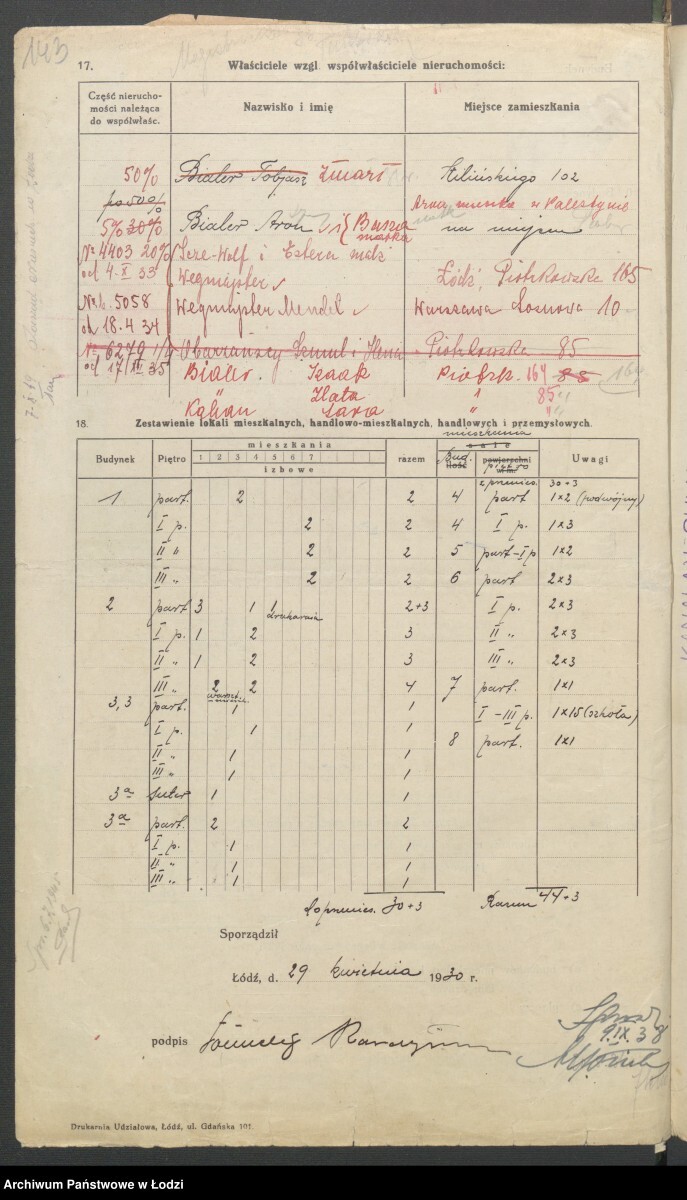 143
17. Właściciele wzgl. współwłaściciele nieruchomości:
Część nierucho-
mości należąca
do współwłaśc.
Nazwisko i imię
Miejsce zamieszkania
50% Bialer Tobjasz Zmarł Kilińskiego 102
po 50%
Aron mieszka w Palestynie
5% 30% Bialer Aron i Basza matka na miejscu
№ 4403 20% Icze-Wolf i Estera małż
od 4.X 33 Wegmajster Łódź, Piotrkowska 165
№ b. 5058 Wegmajster Mendel Warszawa Łosiowa 10
od 18.4 34
№ 6279 Obarzańscy Szmul i Hena Piotrkowska 85
od 17/III 35 Bialer. Izaak Piotrk. 164 85
" Zlata " 85 "
Kahan Sara " " "
18. Zestawienie lokali mieszkalnych, handlowo-mieszkalnych, handlowych i przemysłowych.
mieszkania
Budynek Piętro mieszkania razem sale Uwagi
1 2 3 4 5 6 7
izbowe
Bud. ilość
powierzchni w m.
piętro
z przenies. 30+3
1 part. 2 2 4 part 1x2 (podwójny)
I p. 2 2 4 I p. 1x3
II " 2 2 5 part-I p 1x2
III " 2 2 6 part 2x3
2 part 3 1 1 2+3 I p. 2x3
drukarnia
I p. 1 2 3 II " 2x3
II " 1 2 3 III " 2x3
III " 2 2 4 7 part. 1x1
3,3 part. 1 1 I-III p. 1x15 (szkoła)
I p. 1 1 8 part. 1x1
II " 1 1
III " 1 1
3a suter 1 1
3a part. 2 2
I p. 1 1
II " 1 1
III " 1 1
Do przenies. 30+3 Razem 44+3
Sporządził
Łódź, d. 29 kwietnia 1930 r.
podpis
9.IX.38
Drukarnia Udziałowa, Łódź, ul. Gdańska 101.
Archiwum Państwowe w Łodzi